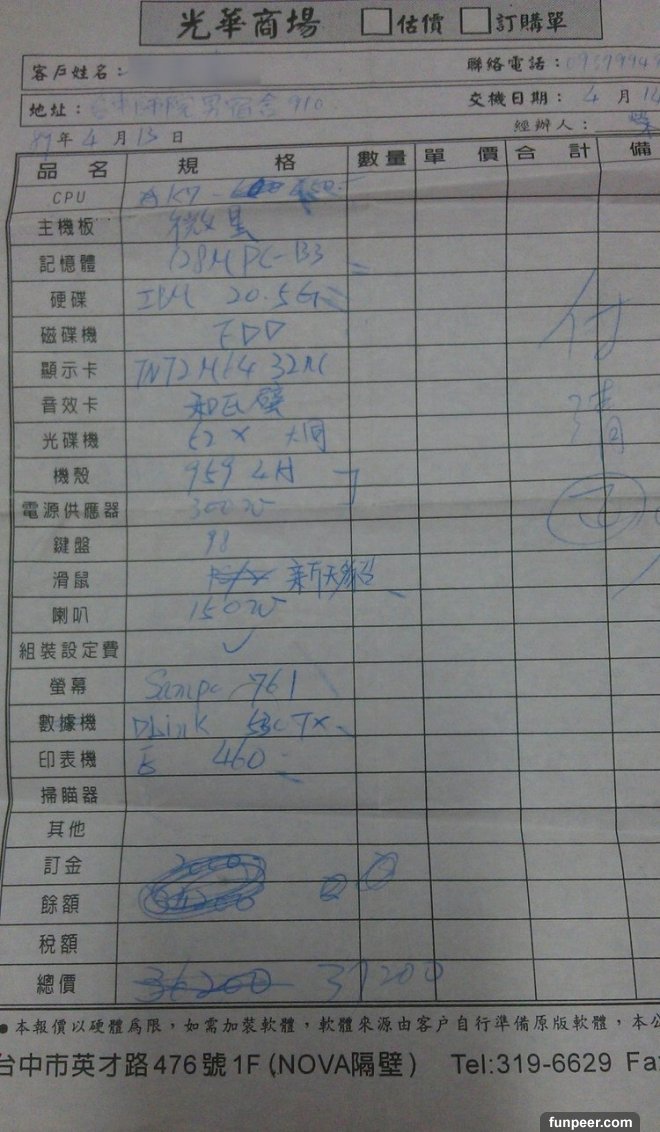 光華商場 □估價 □訂購單
客戶姓名：
聯絡電話：
地址： 910
交機日期：4月14
89年4月13日
經辦人：
品名 規格 數量 單價 合計 備
CPU K7- 650
主機板 微星
記憶體 128M PC-133
硬碟 IBM 20.5G
磁碟機 FDD
顯示卡 TNT2 M64 32M
音效卡
光碟機 52X
機殼 959
電源供應器 300W
鍵盤 98
滑鼠
喇叭 150W
組裝設定費 ✓
螢幕 Sampo 761
數據機 DLink TX
印表機 E 460
掃瞄器
其他
訂金
餘額
稅額
總價 36200 37200
付
清
●本報價以硬體為限，如需加裝軟體，軟體來源由客戶自行準備原版軟體，本公
台中市英才路476號1F(NOVA隔壁) Tel:319-6629 Fa
funpeer.com